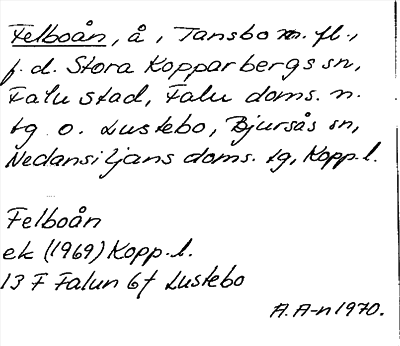 Felboån, å, Tansbo m. fl.,
f. d. Stora Kopparbergs sn,
Falu stad, Falu doms. n.
tg o. Lustebo, Bjursås sn,
Nedansiljans doms. tg, Kopp. l.
Felboån
ek (1969) Kopp. l.
13 F Falun 6f Lustebo
A. A-n 1970.